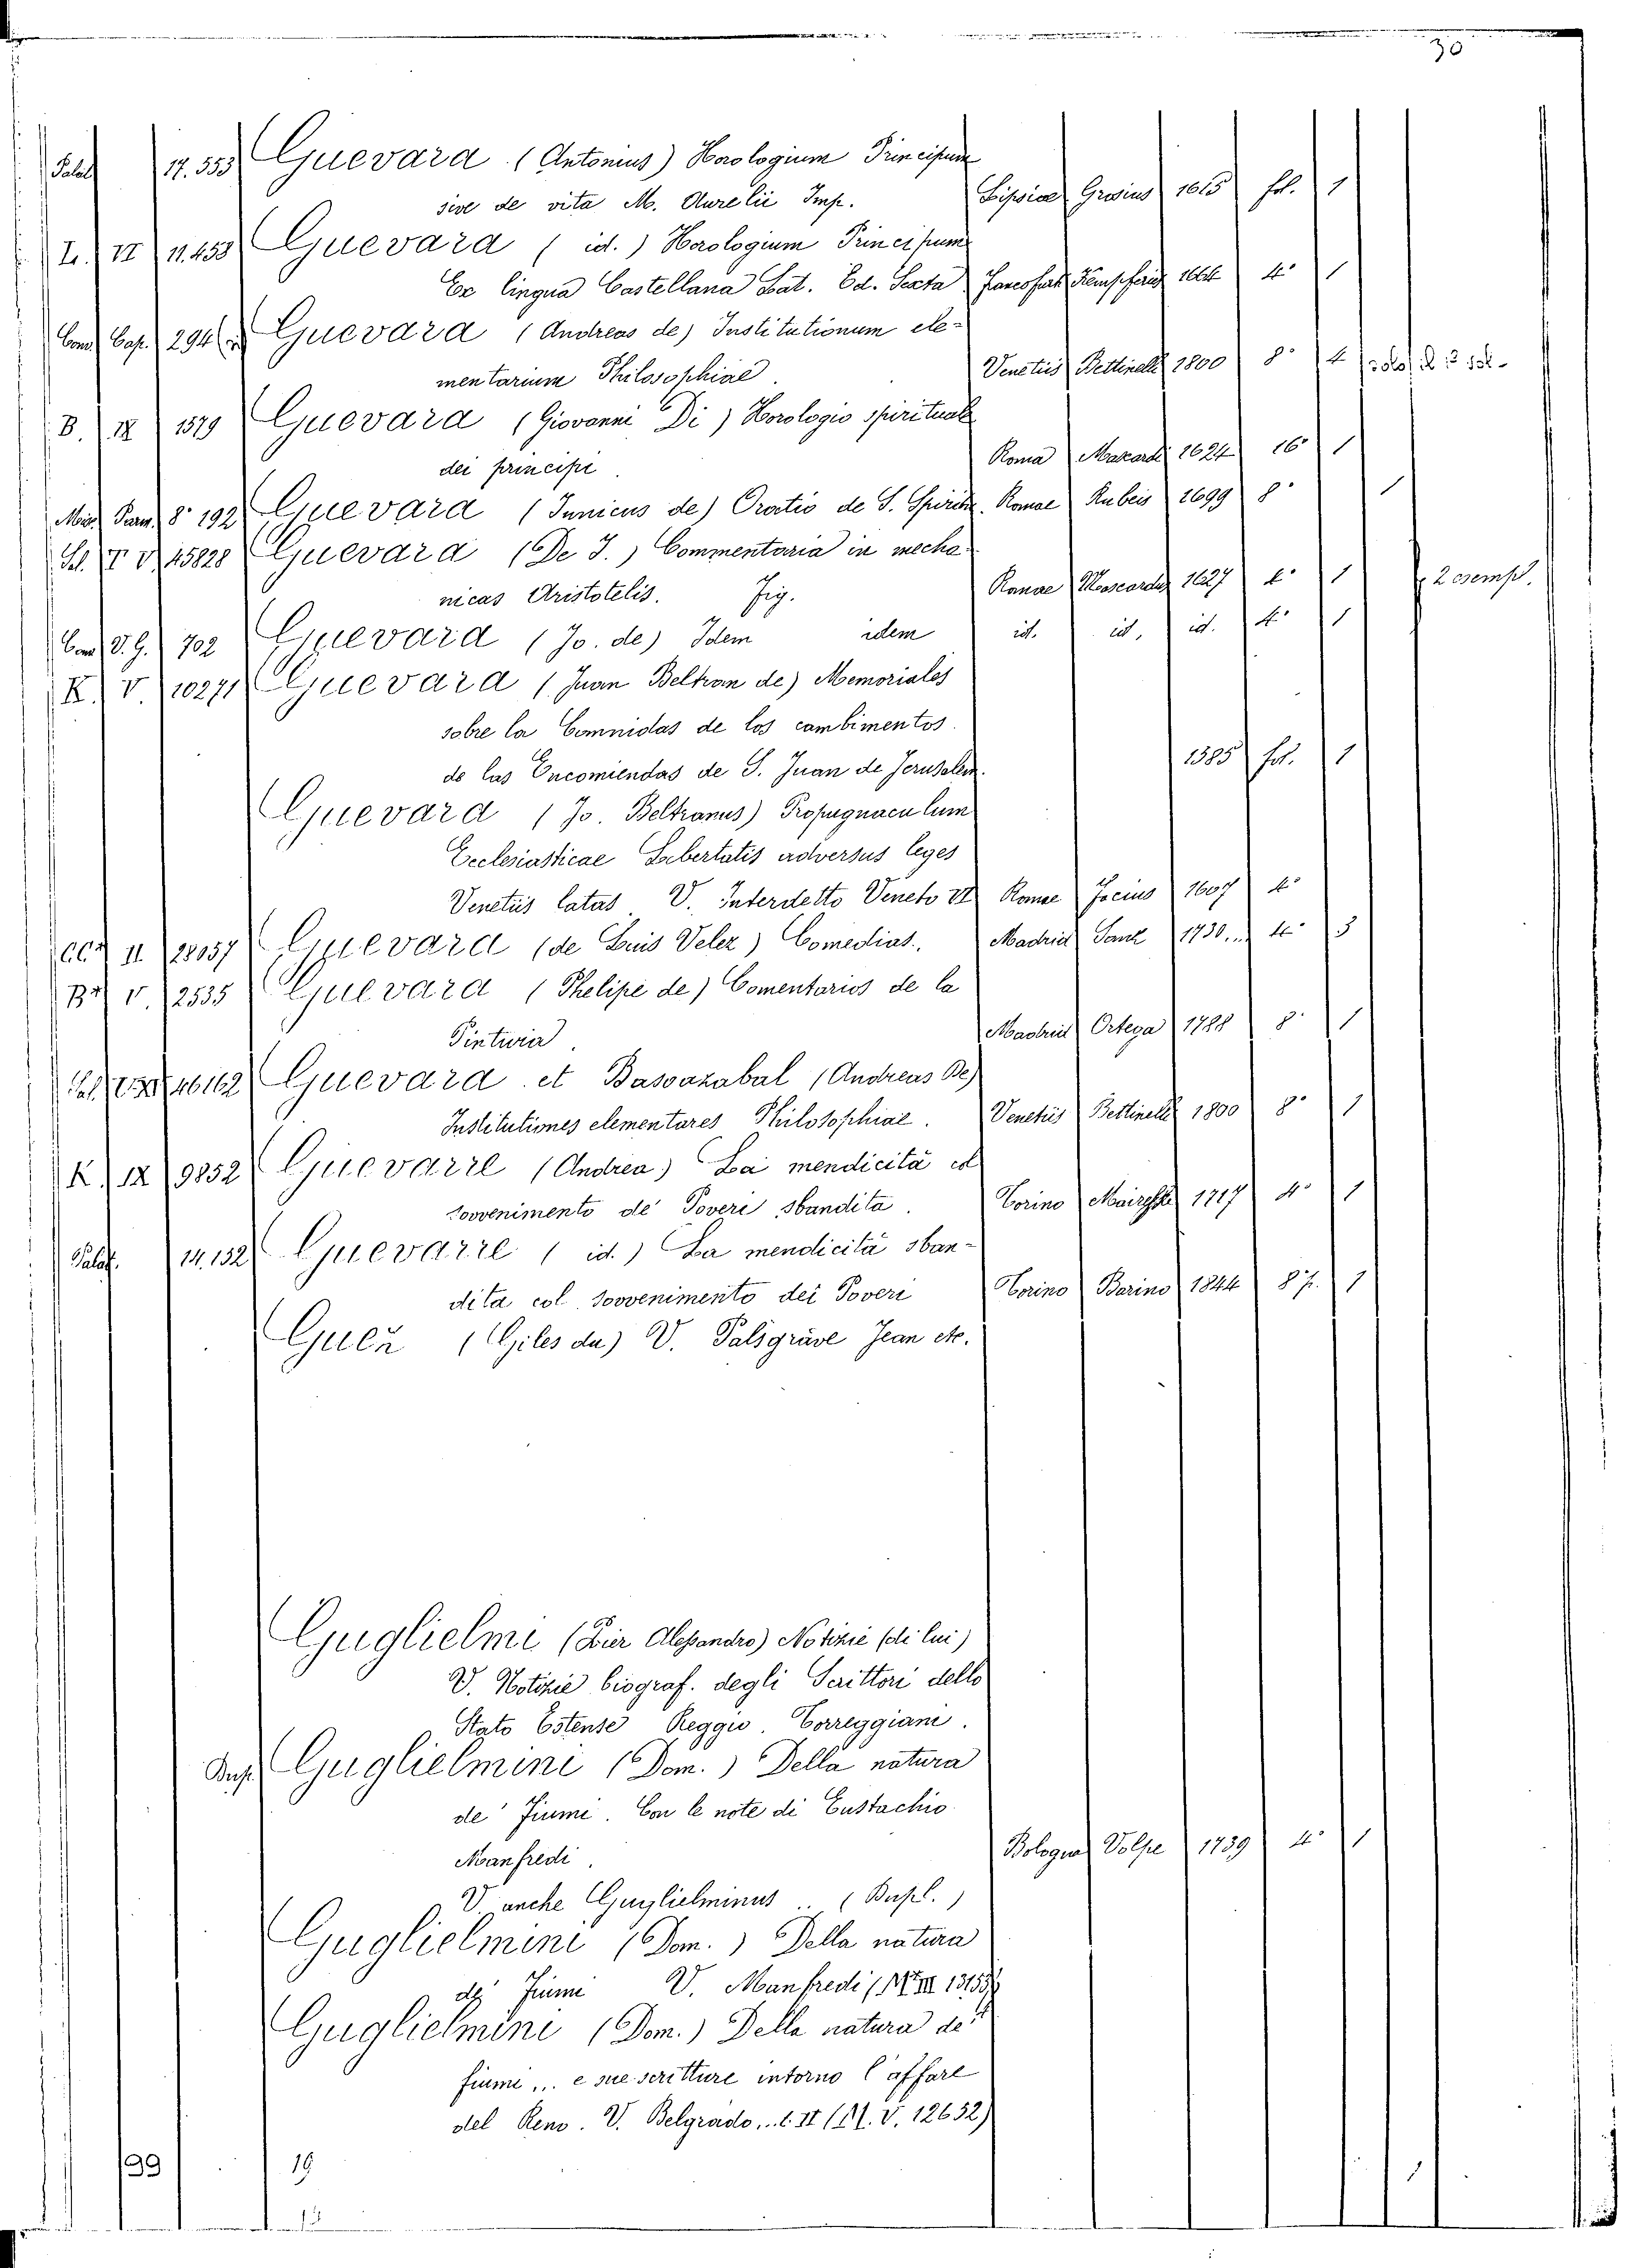 30
Palat 17.353 Guevara (Antonius) Horologium Principum
sive de vita M. Aurelii Imp. Lipsiae Grosius 1615 fol. 1
L. VI 11.458 Guevara (id.) Horologium Principum
Ex lingua Castellana Lat. Ed. Sexta 1664 4° 1
Cap. 294 Guevara (Andreas de) Institutionum ele-
mentarium Philosophiae. Venetiis Bettinelli 1800 8° 4
B. IX 1579 Guevara (Giovanni Di) Horologio spirituale
dei principi. Roma Mascardi 1624 16° 1
8° 192 Guevara (Innicus de) Oratio de S. Spiritu. Romae Rubeis 1699 8° 1
V 45828 Guevara (De J.) Commentaria in mecha-
nicas Aristotelis. Fig. Romae Mascardus 1627 4° 1 2 esemp.
V. G. 702 Guevara (Jo. de) Idem idem id. id. id. 4° 1
K. V. 10271 Guevara (Juan Beltran de) Memoriales
sobre la de los cambimentos
de las Encomiendas de S. Juan de Jerusalem. 1585 fol. 1
Guevara (Jo. Beltranus) Propugnaculum
Ecclesiasticae Libertatis adversus leges
Venetiis latas. V. Interdetto Veneto VI Romae Facius 1607 4°
II. 28057 Guevara (de Luis Velez) Comedias. Madrid Sanz 1730... 4° 3
V. 2535 Guevara (Phelipe de) Comentarios de la
Pintura. Madrid Ortega 1788 8° 1
46162 Guevara et Basoazabal (Andreas De)
Institutiones elementares Philosophiae. Venetiis Bettinelli 1800 8° 1
K. IX 9852 Guevarre (Andrea) La mendicità col
sovvenimento de' Poveri sbandita. Torino Mairesse 1717 4° 1
Palat. 14.152 Guevarre (id.) La mendicità sban-
dita col sovvenimento dei Poveri Torino Barino 1844 8° 1
Guez (Giles du) V. Palsgrave Jean etc.
Guglielmi (Pier Alessandro) Notizie (di lui)
V. Notizie biograf. degli Scrittori dello
Stato Estense Reggio. Correggiani.
Dup. Guglielmini (Dom.) Della natura
de' Fiumi. Con le note di Eustachio
Manfredi. Bologna Volpe 1739 4° 1
V. anche Guglielminus .. (Dupl.)
Guglielmini (Dom.) Della natura
de' Fiumi V. Manfredi
Guglielmini (Dom.) Della natura de'
fiumi ... e sue scritture intorno l'affare
del Reno. V. Belgrado... t. II (M. V. 12632)
99 19 1